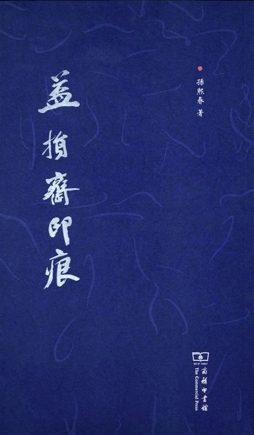 益损斋印痕
孫熙春 著
商務印書館
The Commercial Press